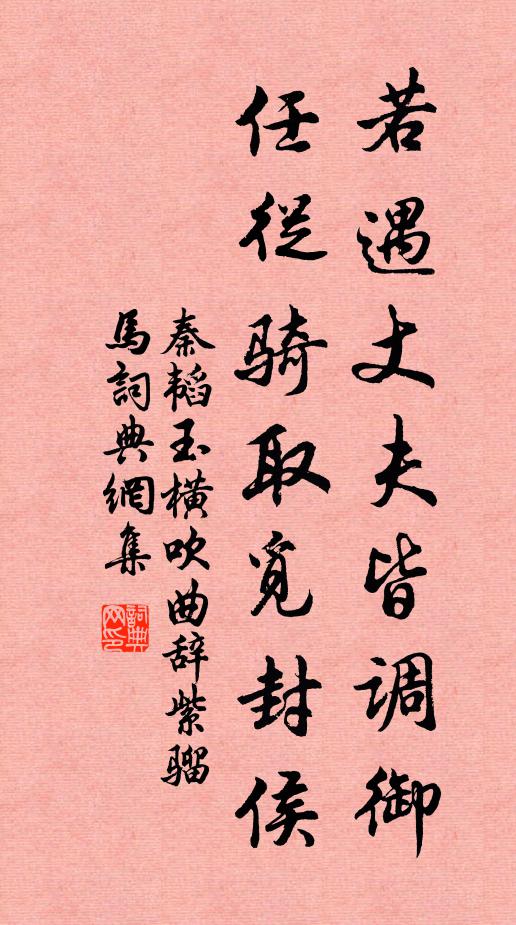 若遇丈夫皆调御
任从骑取觅封侯
秦韬玉横吹曲辞紫骝
馬詞典網集
詞典网印